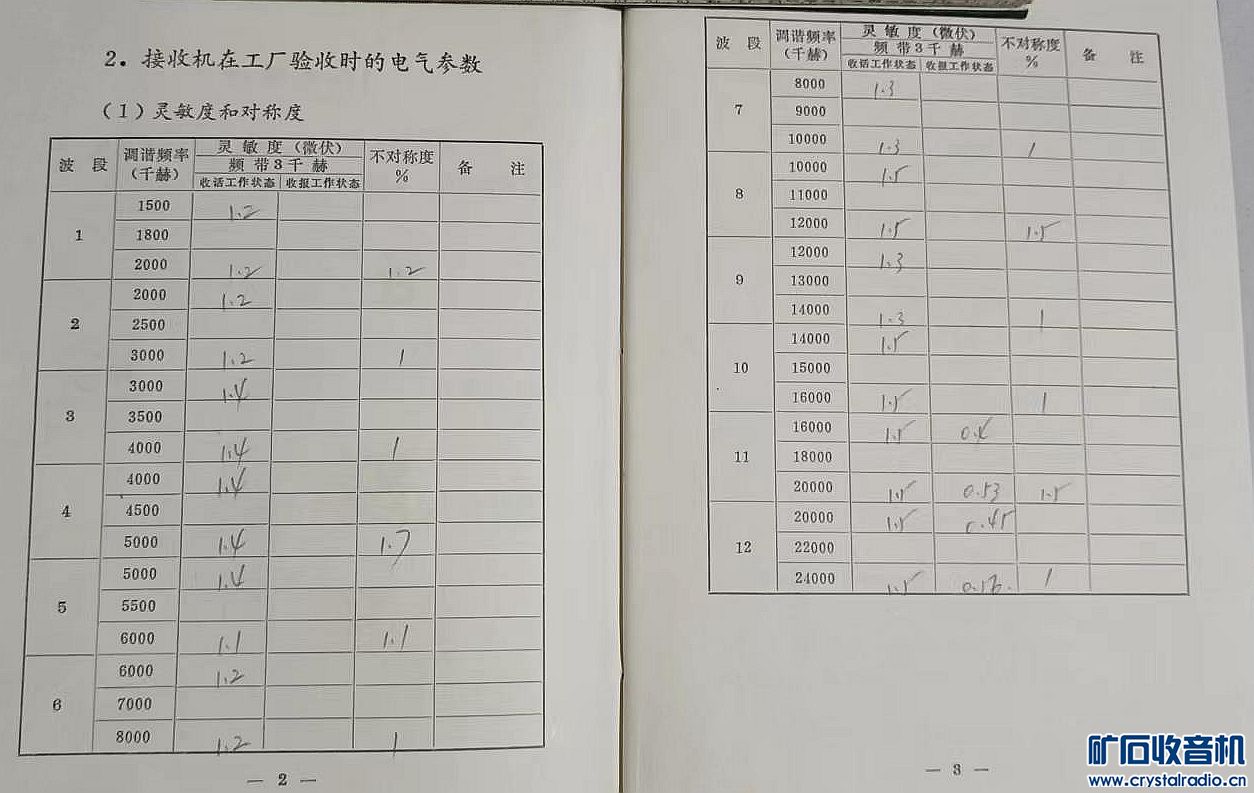 2. 接收机在工厂验收时的电气参数
(1) 灵敏度和对称度
波 段 调谐频率 (千赫) 灵敏度 (微伏) 频带3千赫 收话工作状态 收报工作状态 不对称度 % 备 注
1 1500 1.2
1800
2000 1.2 1.2
2 2000 1.2
2500
3000 1.2 1
3 3000 1.4
3500
4000 1.4 1
4 4000 1.4
4500
5000 1.4 1.7
5 5000 1.4
5500
6000 1.1 1.1
6 6000 1.2
7000
8000 1.2 1
— 2 —
波 段 调谐频率 (千赫) 灵敏度 (微伏) 频带3千赫 收话工作状态 收报工作状态 不对称度 % 备 注
7 8000 1.3
9000
10000 1.3 1
8 10000 1.5
11000
12000 1.5 1.5
9 12000 1.3
13000
14000 1.3 1
10 14000 1.5
15000
16000 1.5 1
11 16000 1.5
18000
20000 1.5 0.53 1.5
12 20000 1.5 0.45
22000
24000 1.5 1
— 3 —
矿石收音机
www.crystalradio.cn